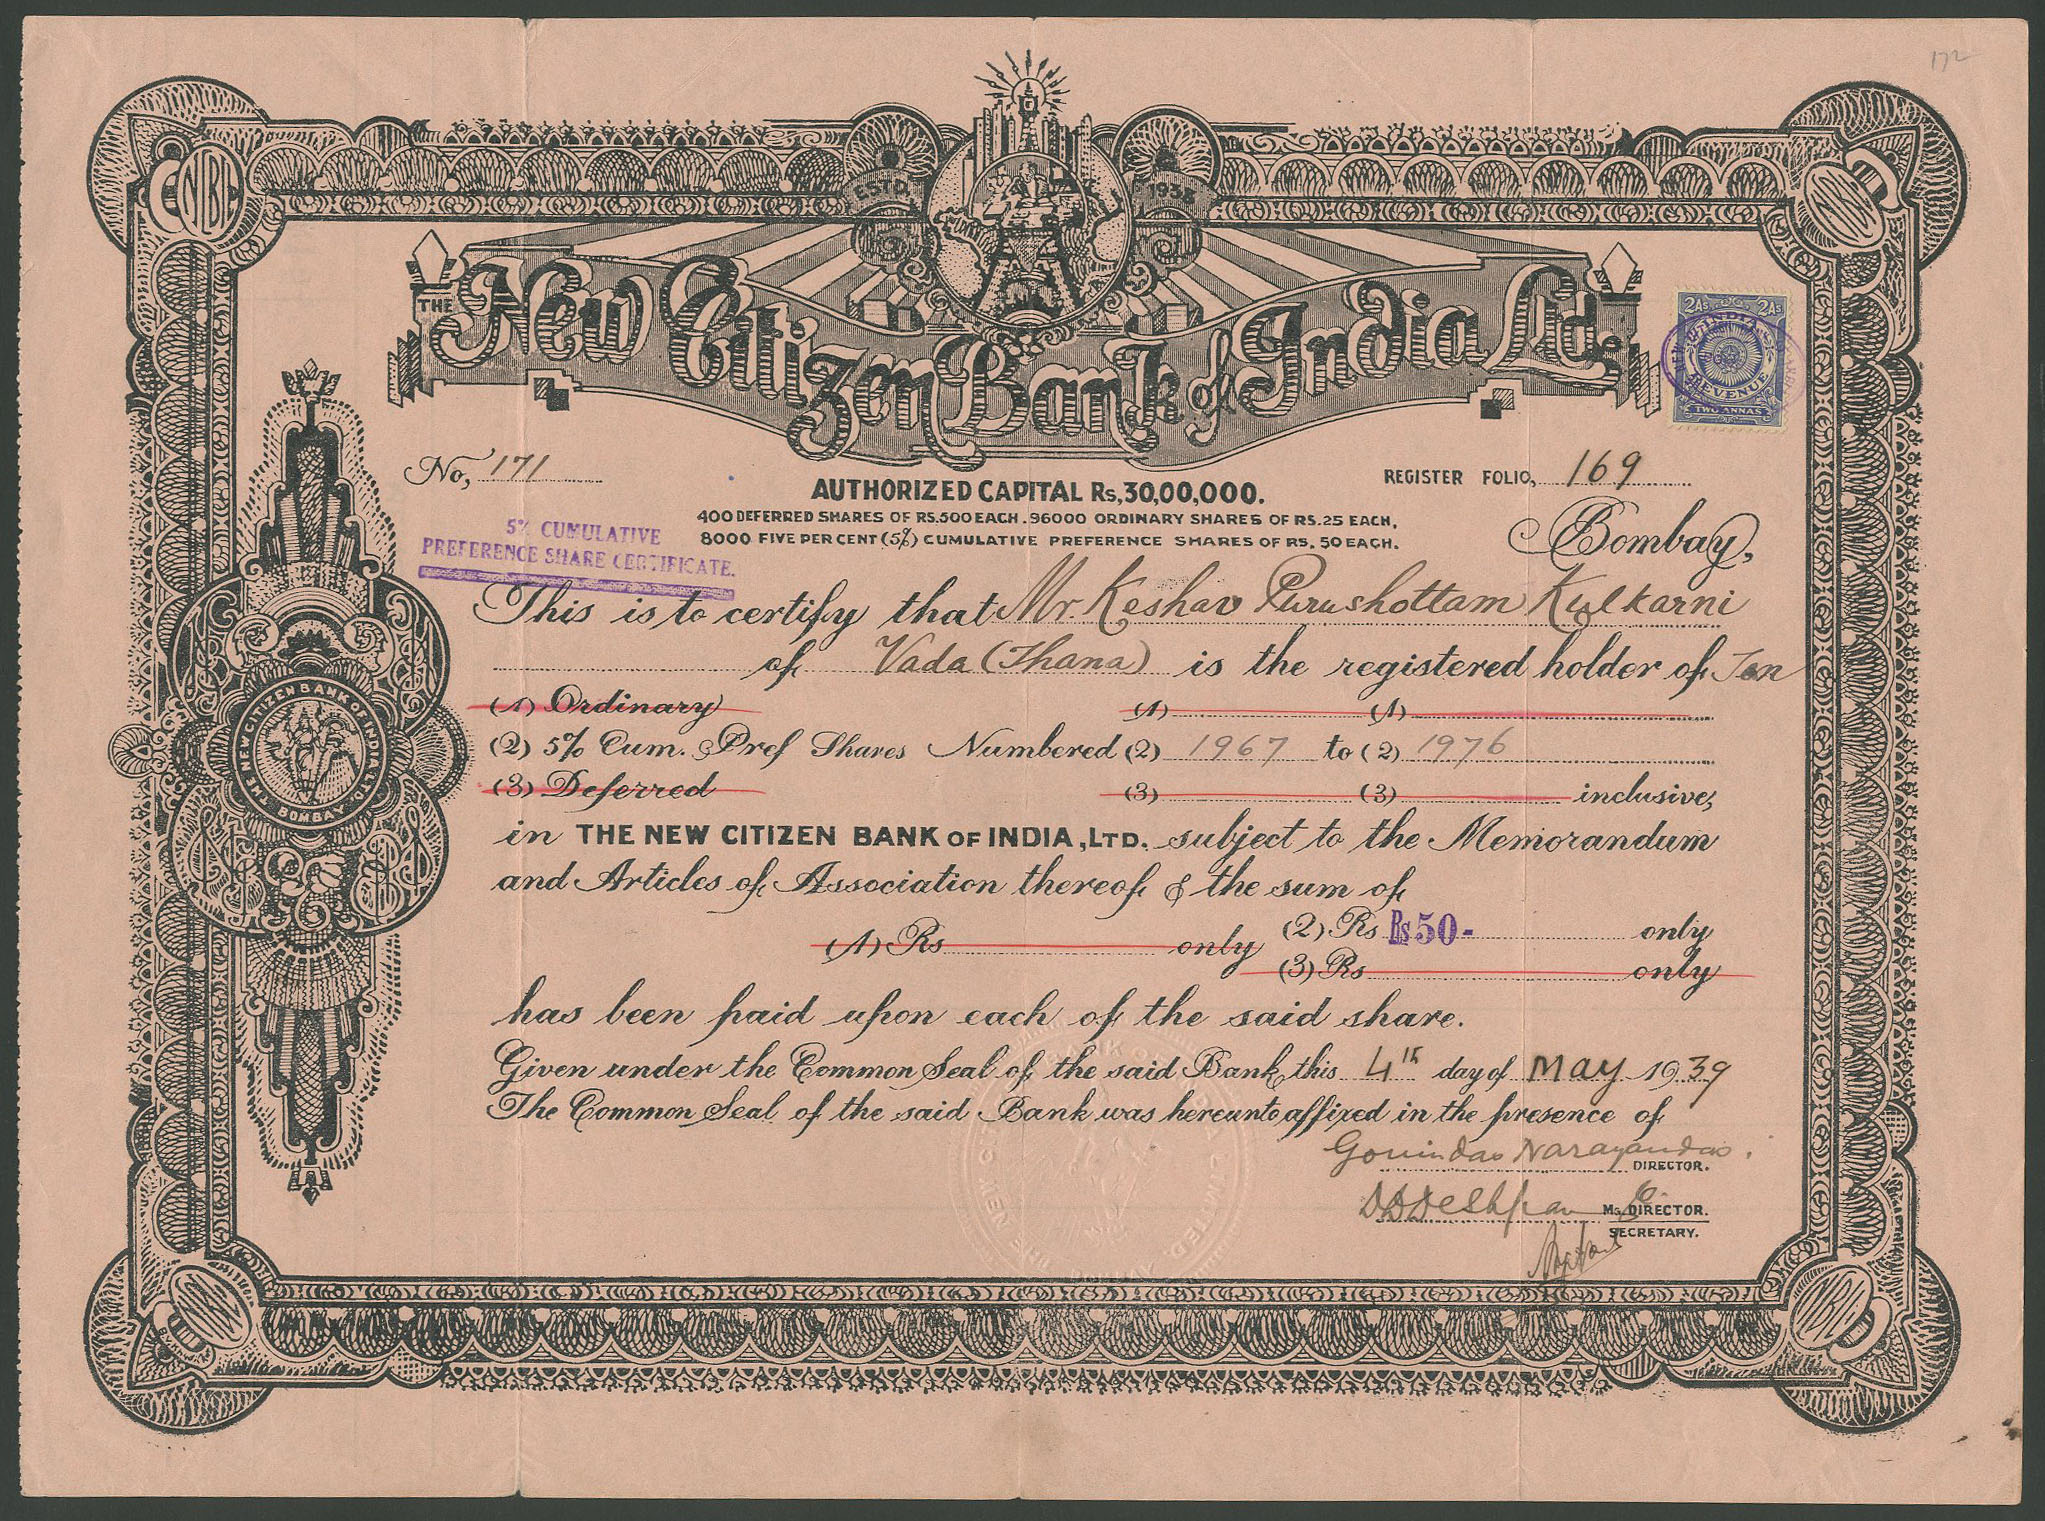 172
ESTD. 1938
NBI
THE New Citizen Bank of India Ltd.
2As 2As
INDIA
REVENUE
TWO ANNAS
No, 171
REGISTER FOLIO, 169
AUTHORIZED CAPITAL Rs,30,00,000.
400 DEFERRED SHARES OF RS.500 EACH. 96000 ORDINARY SHARES OF RS.25 EACH,
8000 FIVE PER CENT (5%) CUMULATIVE PREFERENCE SHARES OF RS. 50 EACH.
Bombay,
5% CUMULATIVE
PREFERENCE SHARE CERTIFICATE.
This is to certify that Mr. Keshav Purushottam Kulkarni
of Vada (Thana) is the registered holder of Ten
(1) Ordinary (1) (1)
(2) 5% Cum. Pref Shares Numbered (2) 1967 to (2) 1976
(3) Deferred (3) (3) inclusive,
in THE NEW CITIZEN BANK OF INDIA, LTD. subject to the Memorandum
and Articles of Association thereof & the sum of
(1) Rs only (2) Rs Rs 50- only
(3) Rs only
has been paid upon each of the said share.
Given under the Common Seal of the said Bank this 4th day of May 1939
The Common Seal of the said Bank was hereunto affixed in the presence of
Govindas Narayandas.
DIRECTOR.
DDDeshpande
MG. DIRECTOR.
SECRETARY.
THE NEW CITIZEN BANK OF INDIA LTD. BOMBAY.
NBI
NBI